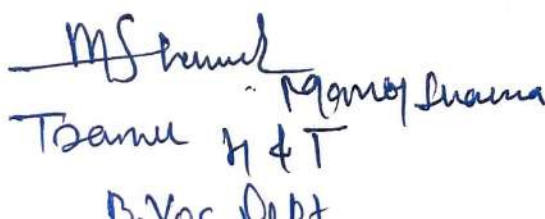 MSharma
Manoj Sharma
Trainer H & T
B.Voc Dept